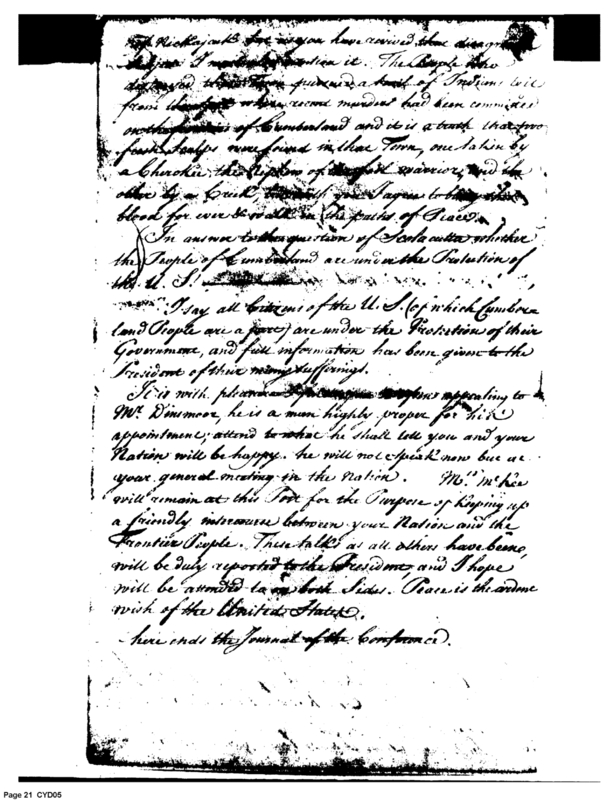 of Nickajack for as you have revived that disagreeable
subject I must mention it. The People who
destroyed those Towns pursued a trail of Indians to it
from where recent murders had been committed
on the of Cumberland and it is a truth that two
fresh Scalps were found in that Town, one taken by
a Cherokee, the Nephew of warrior, and the
other by a Creek, you I agree to bury the
blood for ever & walk in the paths of Peace.
In answer to the question of Scolacutta whether
the People of Cumberland are under the Protection of
the U. S.
I say all Citizens of the U. S. (of which Cumber=
land People are a part) are under the Protection of their
Government, and full information has been given to the
President of their many sufferings.
It is with pleasure appealing to
Mr. Dinsmoor, he is a man highly proper for his
appointment; attend to what he shall tell you and your
Nation will be happy. he will not speak now but at
your general meeting in the Nation. Mr. McKee
will remain at this Post for the Purpose of keeping up
a friendly intercourse between your Nation and the
Frontier People. These talks as all others have been,
will be duly reported to the President, and I hope
will be attended to on both Sides. Peace is the ardent
wish of the United States.
here ends the Journal of the Conference.
Page 21 CYD05